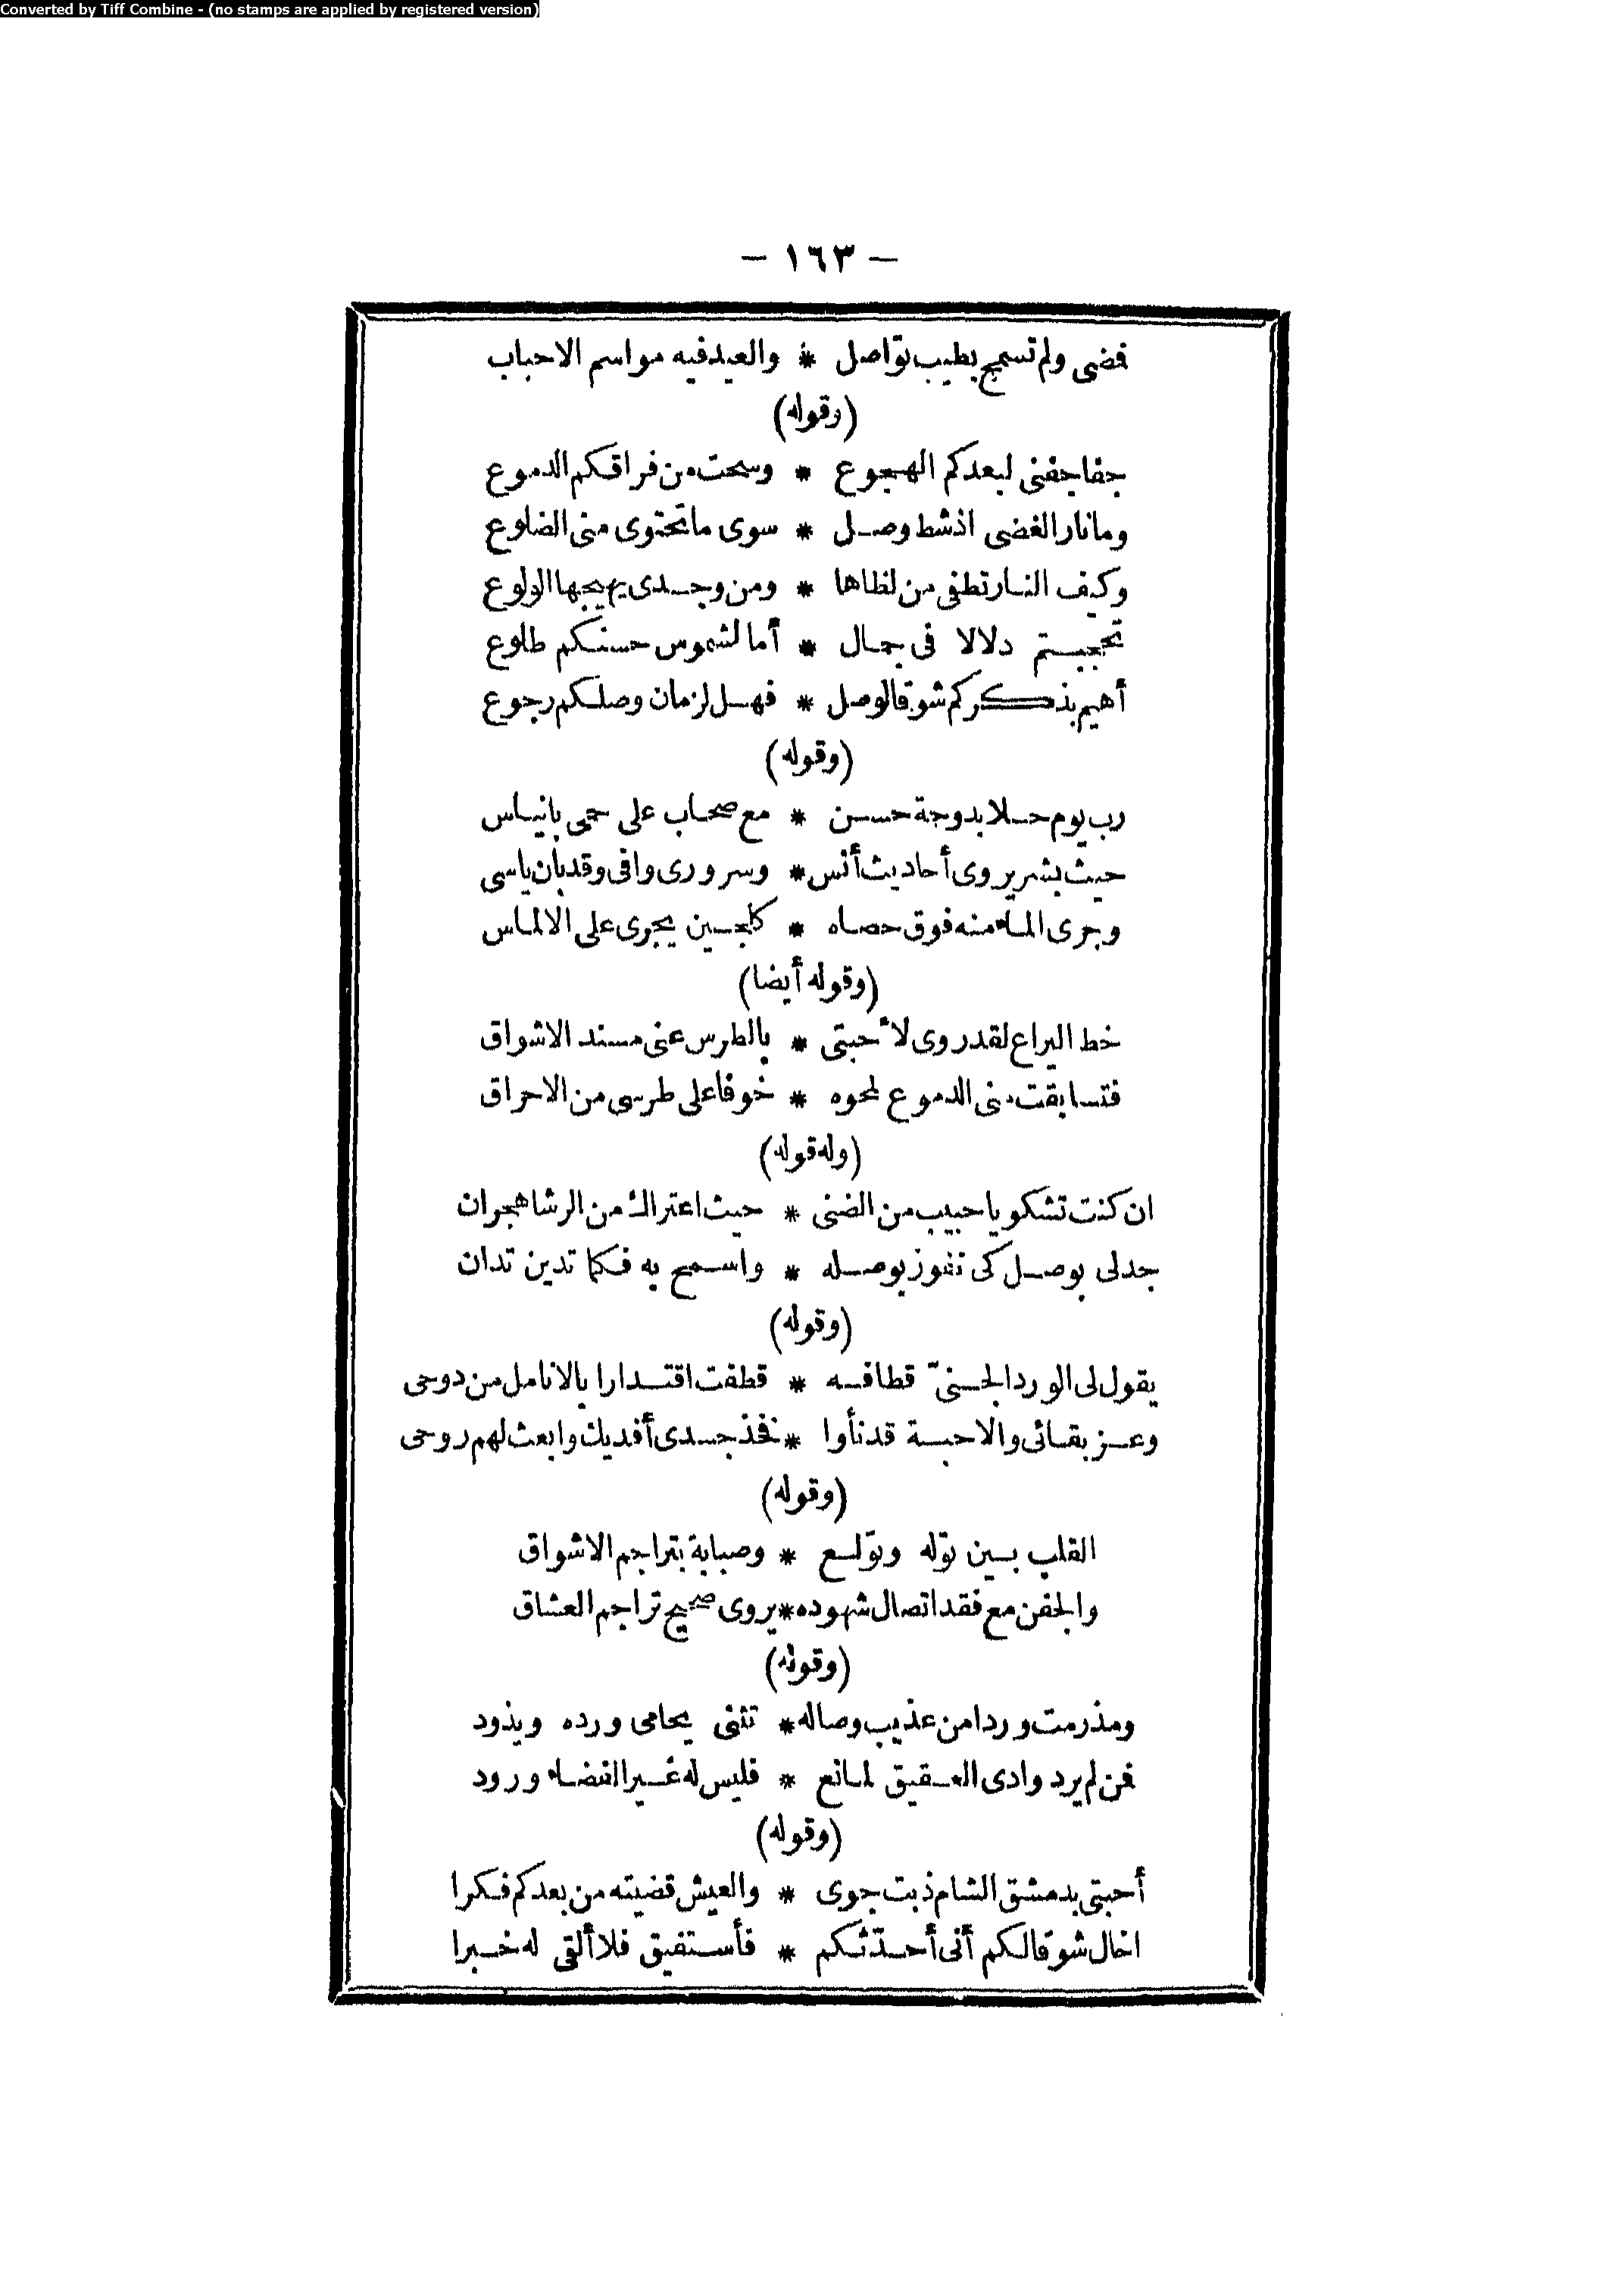 Converted by Tiff Combine - (no stamps are applied by registered version)
— ١٦٣ —
فمضى ولم تسمح بطيب تواصل * والعيد فيه مواسم الاحباب
(وقوله)
جفا جفنى لبعدكم الهجوع * وسحت من فراقكم الدموع
وما نار الغضى اذ شط وصل * سوى ما تحتوى منى الضلوع
وكيف النار تطفى من لظاها * ومن وجدى يهيجها الولوع
تحجبتم دلالا فى جمال * أما لشموس حسنكم طلوع
أهيم بذكركم شوقا لوصل * فهل لزمان وصلكم رجوع
(وقوله)
رب يوم حلا بدوحة حسن * مع صحاب على حمى بانياس
حيث بشر يروى أحاديث أنس * وسرورى وافى وقد بان ياسى
وجرى الماء منه فوق حصاه * كلجين يجرى على الالماس
(وقوله أيضا)
خط اليراع لقد روى لأحبتى * بالطرس عنى مسند الاشواق
فتسابقت منى الدموع لمحوه * خوفا على طرسى من الاحراق
(وله قوله)
ان كنت تشكو يا حبيب من الضنى * حيث اعتراك من الرشا هجران
جد لى بوصل كى تفوز بوصله * واسمح به فكما تدين تدان
(وقوله)
يقول لى الورد الجنىّ قطافه * قطفت اقتدارا بالانامل من دوحى
وعز بقائى والاحبة قد نأوا * فخذ جسدى أفديك وابعث لهم روحى
(وقوله)
القلب بين توله وتولع * وصبابة بتراجم الاشواق
والجفن مع فقد اتصال شهوده * يروى صحيح تراجم العشاق
(وقوله)
ومذ رمت وردا من عذيب وصاله * تثنى يحامى ورده ويذود
فمن لم يرد وادى العقيق لمانع * فليس له غير الفضاء ورود
(وقوله)
أحبتى بدمشق الشام ذبت جوى * والعيش قضيته من بعدكم فكرا
اخال شوقا لكم أنى أحدّثكم * فأستفيق فلا ألقى له خبرا